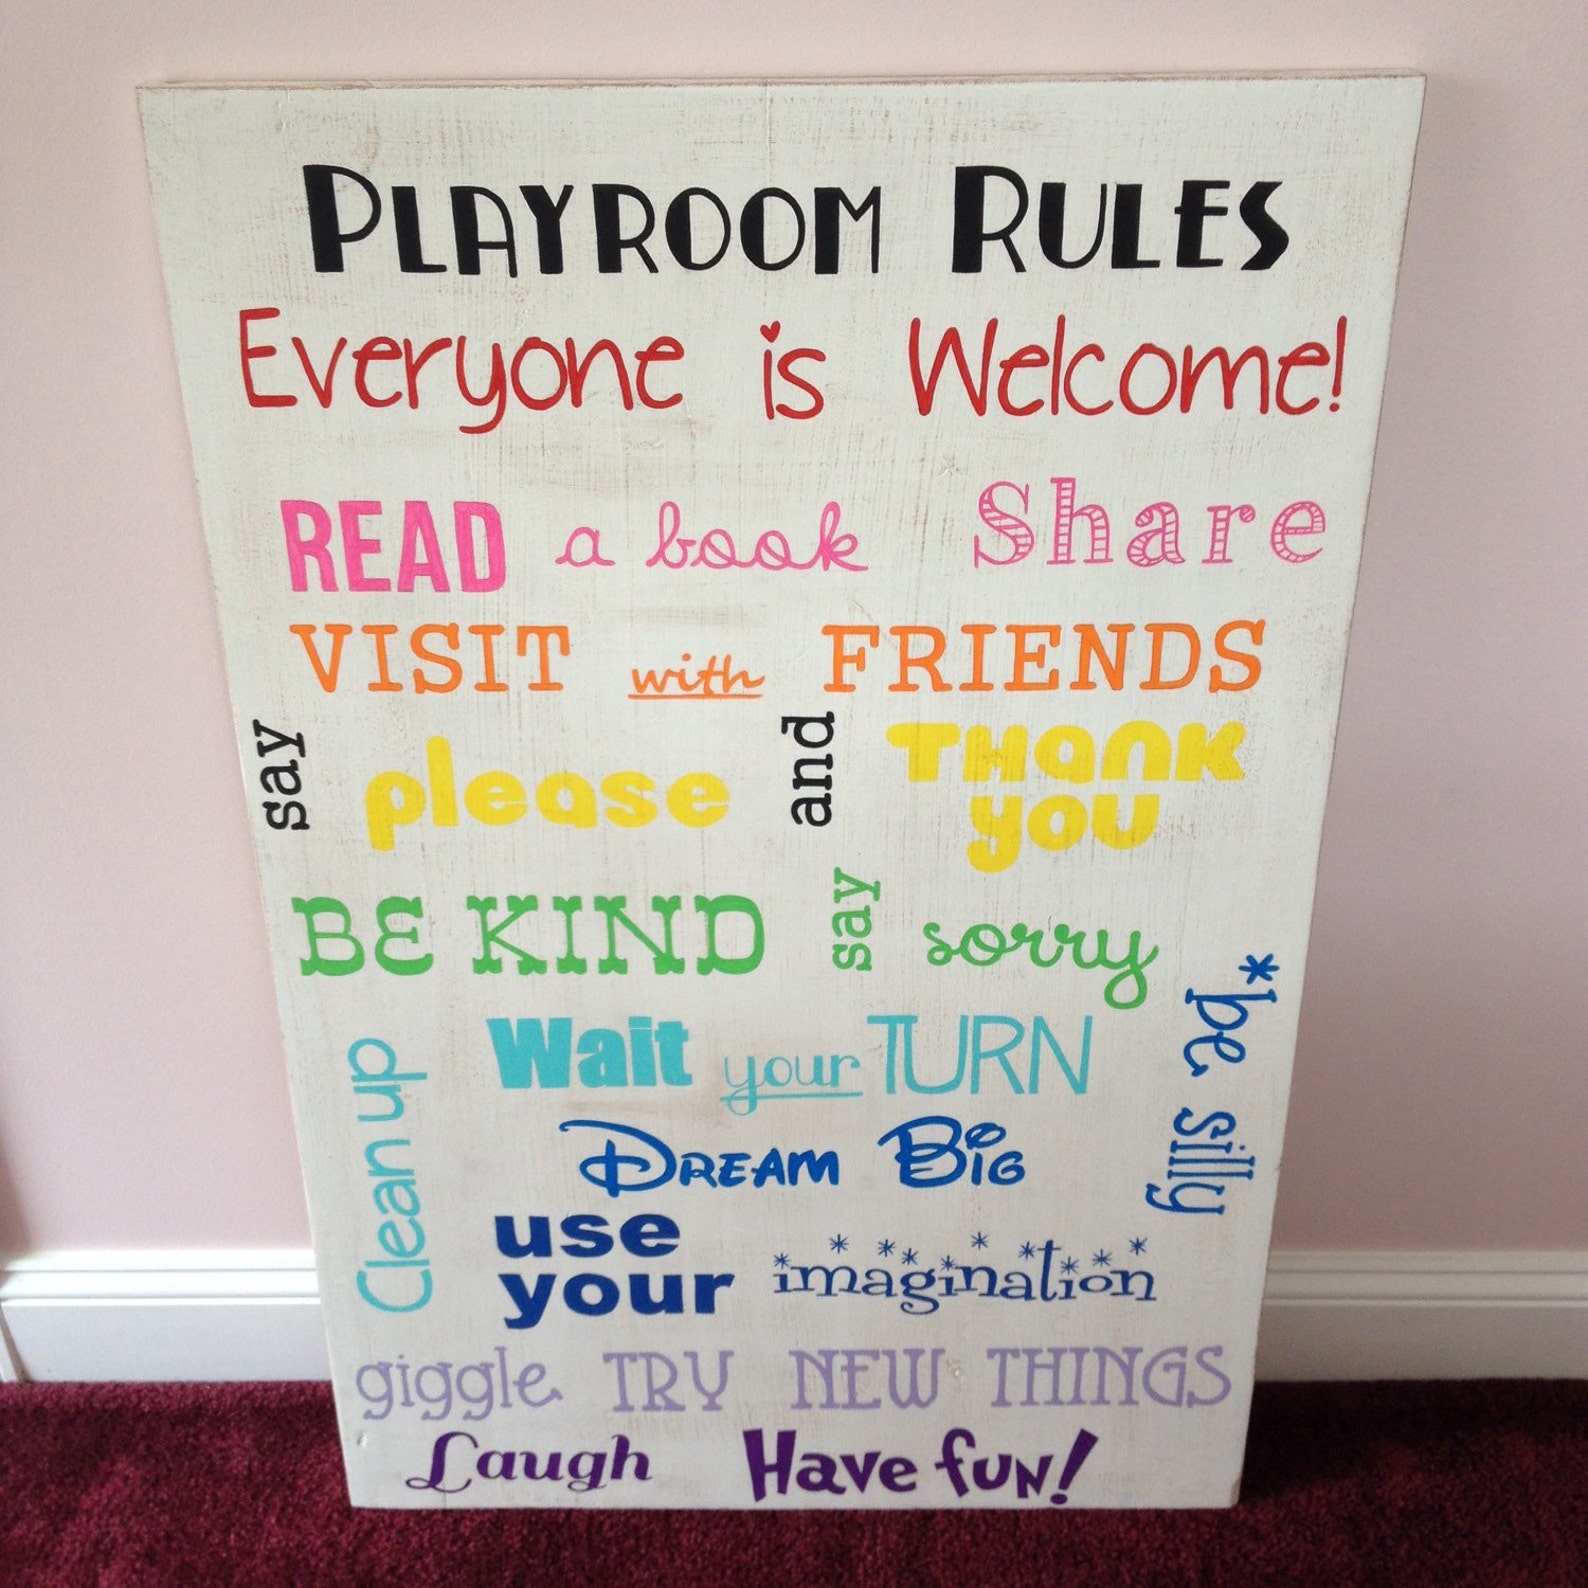 PLAYROOM RULES
Everyone is Welcome!
READ a book Share
VISIT with FRIENDS
say please and THANK YOU
BE KIND say sorry
Clean up
Wait your TURN
*be silly
DREAM BIG
use your imagination
giggle TRY NEW THINGS
Laugh Have fun!